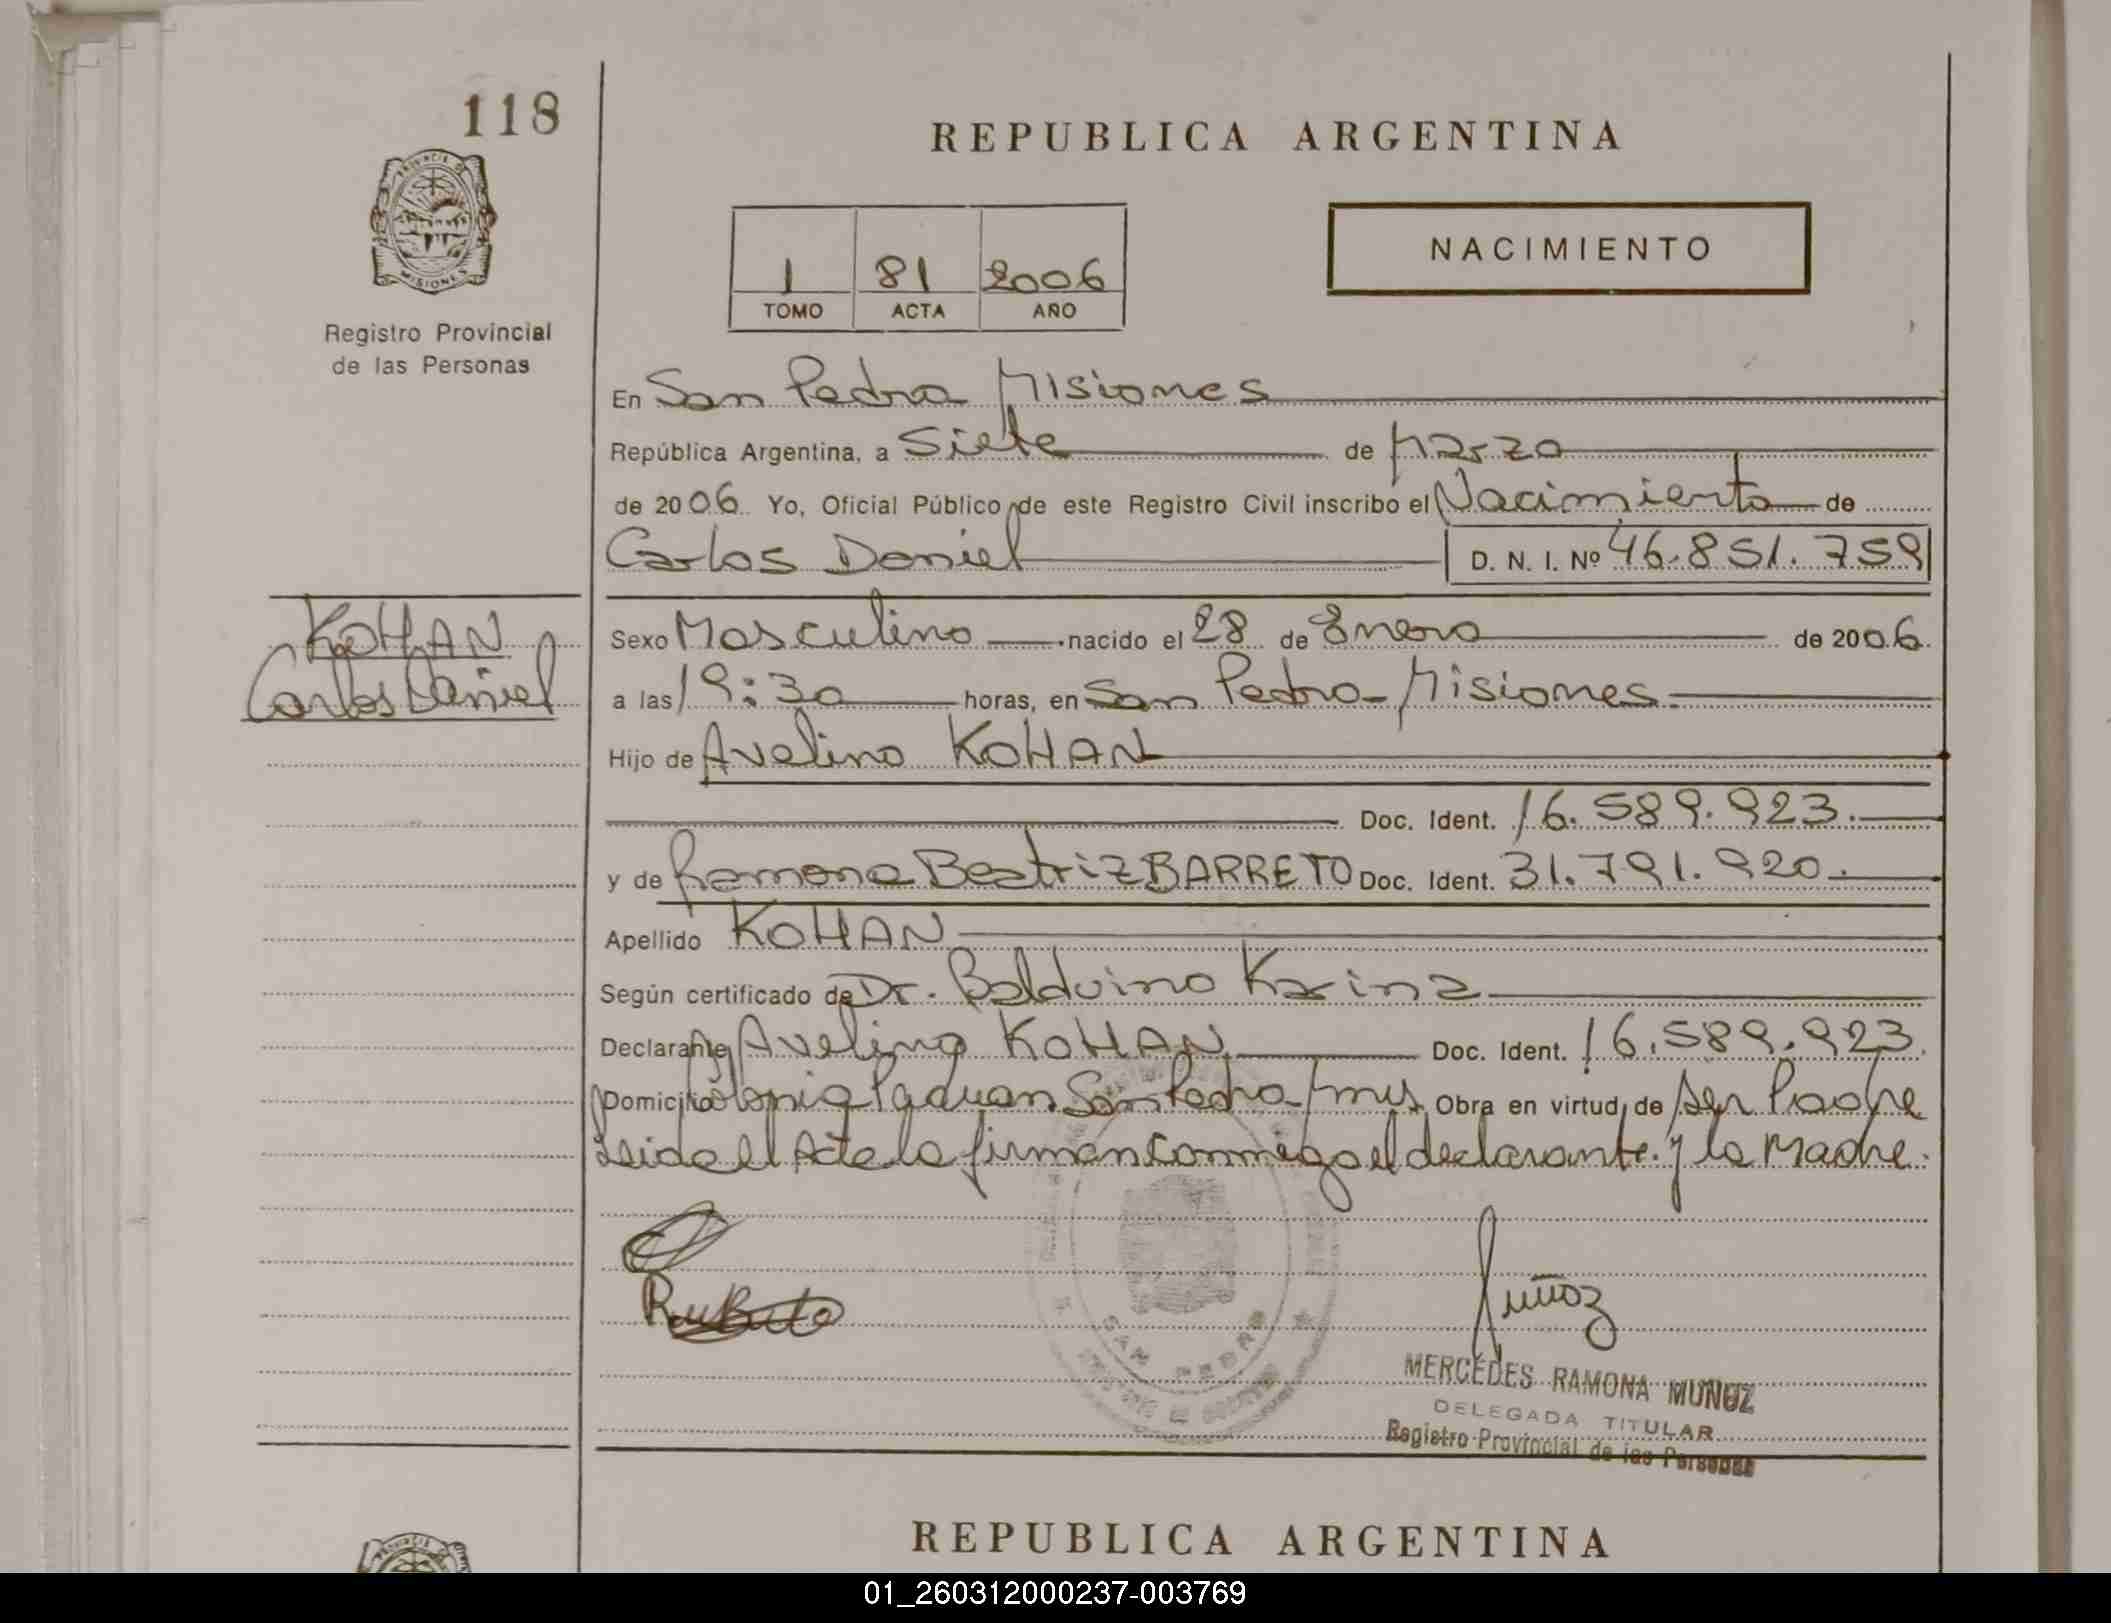 118
REPUBLICA ARGENTINA
PROVINCIA DE
MISIONES
Registro Provincial
de las Personas
NACIMIENTO
1 81 2006
TOMO ACTA AÑO
En San Pedro Misiones
República Argentina, a Siete de Marzo
de 2006 Yo, Oficial Público de este Registro Civil inscribo el Nacimiento de
Carlos Daniel D. N. I. Nº 46.851.759
KOHAN
Carlos Daniel
Sexo Masculino nacido el 28 de Enero de 2006
a las 19:30 horas, en San Pedro - Misiones
Hijo de Avelino KOHAN
Doc. Ident. 16.589.923.
y de Ramona Beatriz BARRETO Doc. Ident. 31.791.920.
Apellido KOHAN
Según certificado de Dr. Balduino Karina
Declarante Avelino KOHAN Doc. Ident. 16.589.923.
Domicilio Colonia Paduan San Pedro Mnes Obra en virtud de ser Padre
Leida el Acta la firman conmigo el declarante y la Madre.
SAN PEDRO
Muñoz
MERCEDES RAMONA MUÑOZ
DELEGADA TITULAR
Registro Provincial de las Personas
REPUBLICA ARGENTINA
01_260312000237-003769